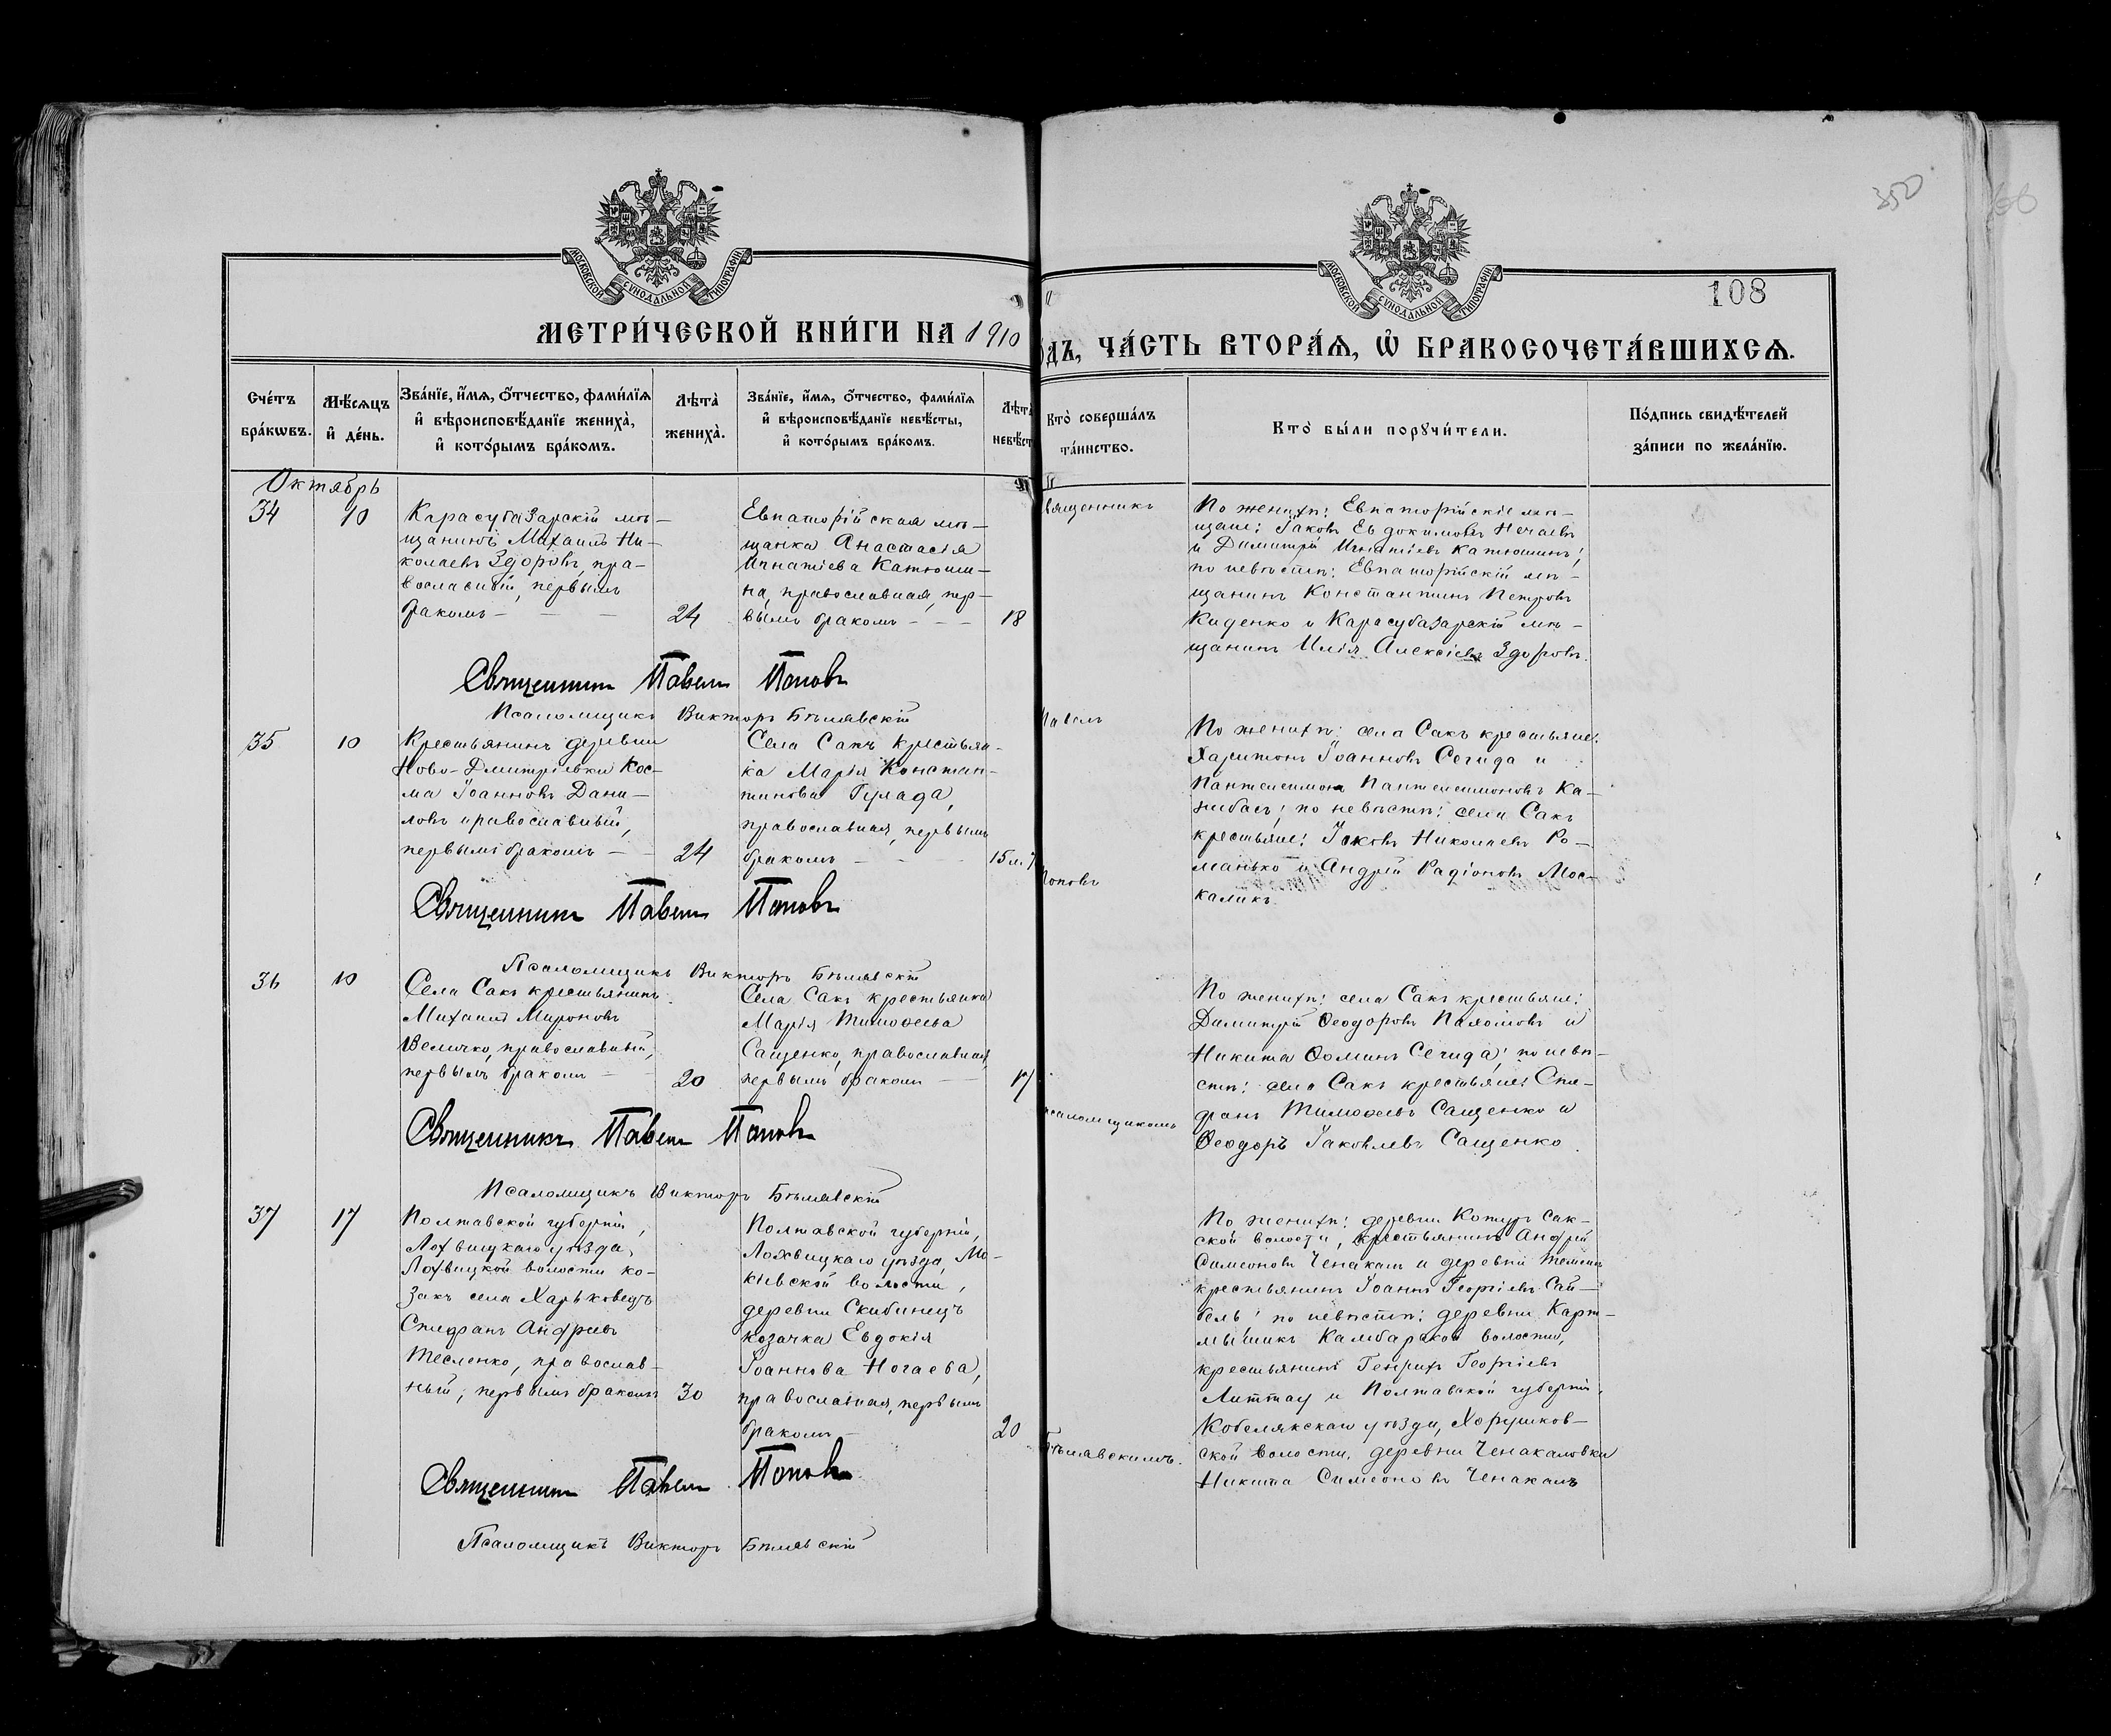 350
108
МОСКОВСКОЙ СѴНОДАЛЬНОЙ ТИПОГРАФІИ
МОСКОВСКОЙ СѴНОДАЛЬНОЙ ТИПОГРАФІИ
МЕТРИ́ЧЕСКОЙ КНИ́ГИ НА 1910
ДЪ, ЧА́СТЬ ВТОРА́Ѧ, Ѽ БРАКОСОЧЕТА́ВШИХСѦ.
Сче́тъ бра́кѡвъ.
Мѣ́сяцъ и҆ де́нь.
Зва́нїе, и҆́мя, ѻ҆́тчество, фами́лїя и҆ вѣроисповѣ́данїе жениха̀, и҆ кото́рымъ бра́комъ.
Лѣ́та̀ жениха̀.
Зва́нїе, и҆́мя, ѻ҆́тчество, фами́лїя и҆ вѣроисповѣ́данїе невѣ́сты, и҆ кото́рымъ бра́комъ.
Лѣ́та невѣ́ст
Кто̀ соверша́лъ та́инство.
Кто̀ бы́ли порꙋчи́тели.
По́дпись свидѣ́телей за́писи по жела́нїю.
Октябрь
34
10
Карасубазарскій мѣ-
щанинъ Михаилъ Ни-
колаевъ Здоровъ, пра-
вославный, первымъ
бракомъ - - -
24
Евпаторійская мѣ-
щанка Анастасія
Игнатіева Катюши-
на, православная, пер-
вымъ бракомъ - - -
18
вященникъ
По женихѣ: Евпаторійскіе мѣ-
щане: Іаковъ Евдокимовъ Нечаевъ
и Димитрій Игнатіевъ Катюшинъ;
по невѣстѣ: Евпаторійскій мѣ-
щанинъ Константинъ Петровъ
Киденко и Карасубазарскій мѣ-
щанинъ Илія Алексіевъ Здоровъ.
Священникъ Павелъ Поповъ
Псаломщикъ Викторъ Бѣлявскій
35
10
Крестьянинъ деревни
Ново-Дмитріевки Кос-
ма Іоанновъ Дани-
ловъ православный,
первымъ бракомъ -
24
Села Сакъ крестьян-
ка Марія Констан-
тинова Гулада,
православная, первымъ
бракомъ - - -
Павелъ
Поповъ
По женихѣ: села Сакъ крестьяне:
Харитонъ Іоанновъ Сегида и
Пантелеимонъ Пантелеимоновъ Ка-
нибасъ; по невѣстѣ: села Сакъ
крестьяне: Іаковъ Николаевъ Ро-
манько и Андрей Радіоновъ Мос-
каликъ.
Священникъ Павелъ Поповъ
Псаломщикъ Викторъ Бѣлявскій
36
10
Села Сакъ крестьянинъ
Михаилъ Мироновъ
Величко, православный,
первымъ бракомъ - -
20
Села Сакъ крестьянка
Марія Тимоѳеева
Сащенко, православная,
первымъ бракомъ - -
17
псаломщикомъ
По женихѣ: села Сакъ крестьяне:
Димитрій Ѳеодоровъ Пахомовъ и
Никита Ѳоминъ Сегида; по невѣ-
стѣ: села Сакъ крестьяне: Сте-
фанъ Тимоѳеевъ Сащенко и
Ѳеодоръ Іаковлевъ Сащенко.
Священникъ Павелъ Поповъ
Псаломщикъ Викторъ Бѣлявскій
37
17
Полтавской губерніи,
Лохвицкаго уѣзда,
Лохвицкой волости ко-
закъ села Харьковецъ
Стефанъ Андреевъ
Тесленко, православ-
ный, первымъ бракомъ
30
Полтавской губерніи,
Лохвицкаго уѣзда, Мо-
кіевской волости,
деревни Скибинецъ
козачка Евдокія
Іоаннова Ногаева,
православная, первымъ
бракомъ -
20
Бѣлявскимъ.
По женихѣ: деревни Контуръ Сак-
ской волости, крестьянинъ Андрей
Симеоновъ Ченакалъ и деревни
крестьянинъ Іоаннъ Георгіевъ Сай-
бель; по невѣстѣ: деревни Карт-
мышикъ Камбарской волости,
крестьянинъ Генрихъ Георгіевъ
Литтау и Полтавской губерніи,
Кобелякскаго уѣзда, Хорушков-
ской волости, деревни Ченакаловки
Никита Симеоновъ Ченакалъ
Священникъ Павелъ Поповъ
Псаломщикъ Викторъ Бѣлявскій